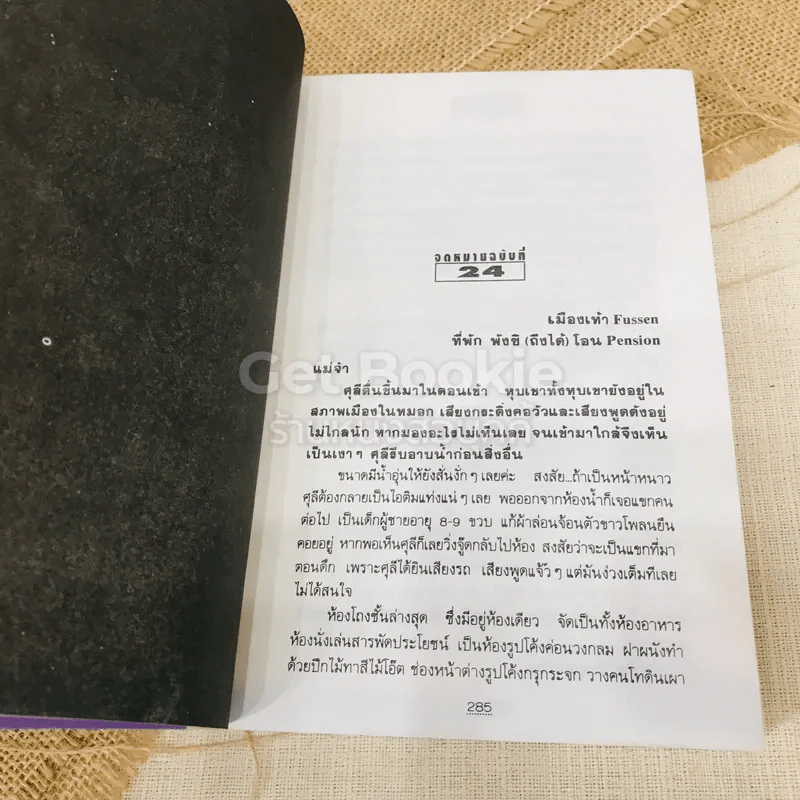 จดหมายฉบับที่
24
เมืองเท้า Fussen
ที่พัก พังซิ (ถึงได้) โอน Pension
แม่จ๋า
ศุลีตื่นขึ้นมาในตอนเช้า หุบเขาทั้งหุบเขายังอยู่ใน
สภาพเมืองในหมอก เสียงกระดิ่งคอวัวและเสียงพูดดังอยู่
ไม่ไกลนัก หากมองอะไรไม่เห็นเลย จนเข้ามาใกล้จึงเห็น
เป็นเงาๆ ศุลีรีบอาบน้ำก่อนสิ่งอื่น
ขนาดมีน้ำอุ่นให้ยังสั่นงั่กๆ เลยค่ะ สงสัย...ถ้าเป็นหน้าหนาว
ศุลีต้องกลายเป็นไอติมแท่งแน่ๆ เลย พอออกจากห้องน้ำก็เจอแขกคน
ต่อไป เป็นเด็กผู้ชายอายุ 8-9 ขวบ แก้ผ้าล่อนจ้อนตัวขาวโพลนยืน
คอยอยู่ หากพอเห็นศุลีก็เลยวิ่งจู๊ดกลับไปห้อง สงสัยว่าจะเป็นแขกที่มา
ตอนดึก เพราะศุลีได้ยินเสียงรถ เสียงพูดแจ้วๆ แต่มันง่วงเต็มทีเลย
ไม่ได้สนใจ
ห้องโถงชั้นล่างสุด ซึ่งมีอยู่ห้องเดียว จัดเป็นทั้งห้องอาหาร
ห้องนั่งเล่นสารพัดประโยชน์ เป็นห้องรูปโค้งค่อนวงกลม ฝาผนังทำ
ด้วยปีกไม้ทาสีไม้โอ๊ต ช่องหน้าต่างรูปโค้งกรุกระจก วางคนโทดินเผา
285
Get Bookie
ร้านหนังสือบุ๊คกี้